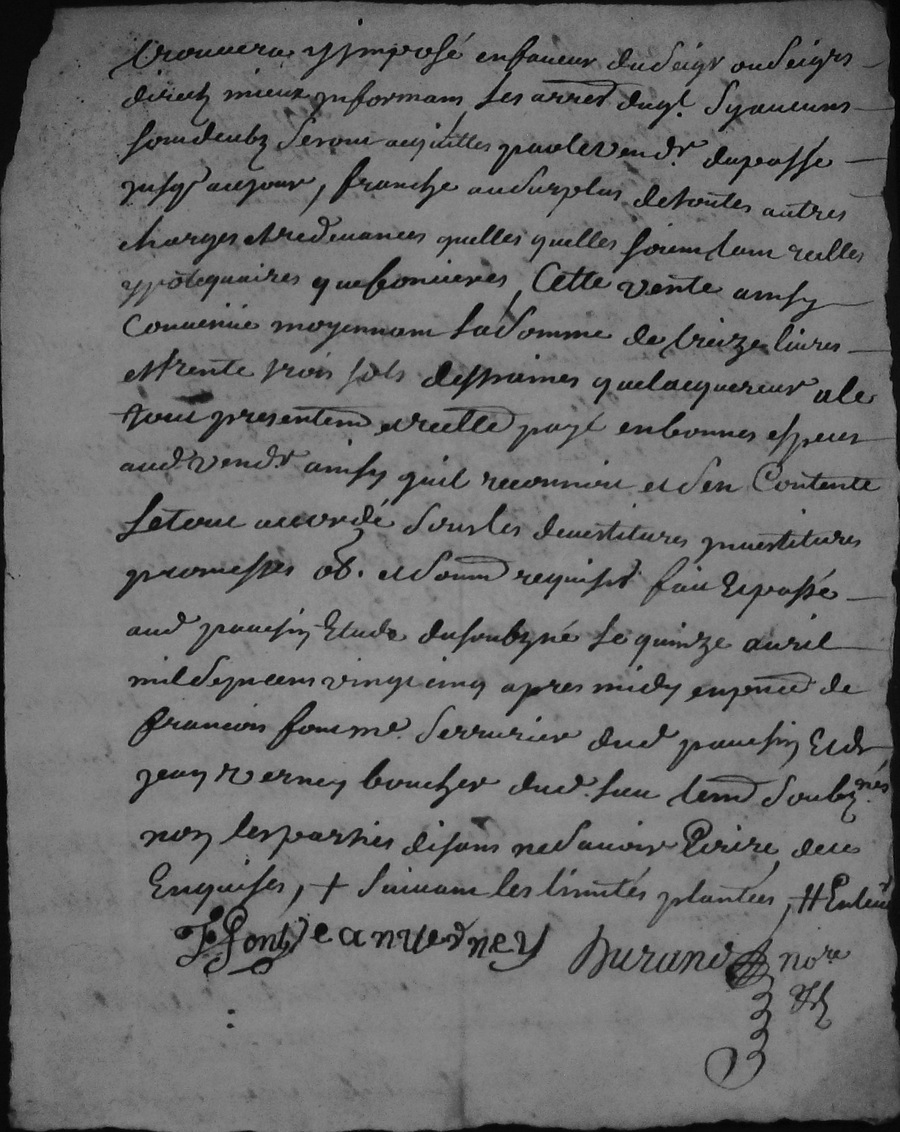 trouvera ymposé en faveur du Seigr ou Seigrs
directz mieux informans les arres dugt. Sy aucuns
sont deubz Seront acquittes par le vendr du passé
jusqu'au jour, franche au Surplus de toutes autres
charges et redevances quelles quelles soient tant reelles
ypotequaires que foncieres, Cette vente ainsy
Convenue moyennant la Somme de treize livres
et trente trois sols destraines que lacquereur a le
tout presentemt et reellemt payé en bonnes especes
aud. vendr ainsy quil reconnoit et Sen Contente
Le tout accordé Sous les devestitures investitures
promesses ob. et Soum requises fait Et passé
aud pousin Etude du soubzné le quinze avril
mil Sept cens vingt cinq apres midy en pnce de
francois Serrurier dud pousin Et de
jean verney boucher dud. lieu temd Soubznés
non les parties disant ne Savoir Ecrire de ce
Enquises, + Suivant les limittes plantées, #
f font jean verney Durand nore